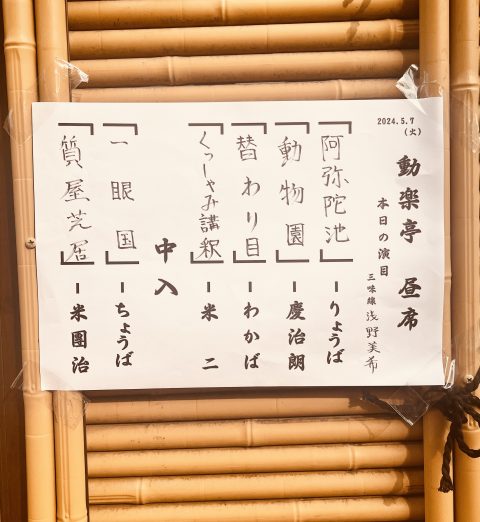 2024.5.7
(火)
動楽亭 昼席
本日の演目
三味線 浅野美希
「阿弥陀池」-りょうば
「動物園」-慶治朗
「替わり目」-わかば
「くっしゃみ講釈」-米 二
中入
「一眼国」-ちょうば
「質屋芝居」-米團治